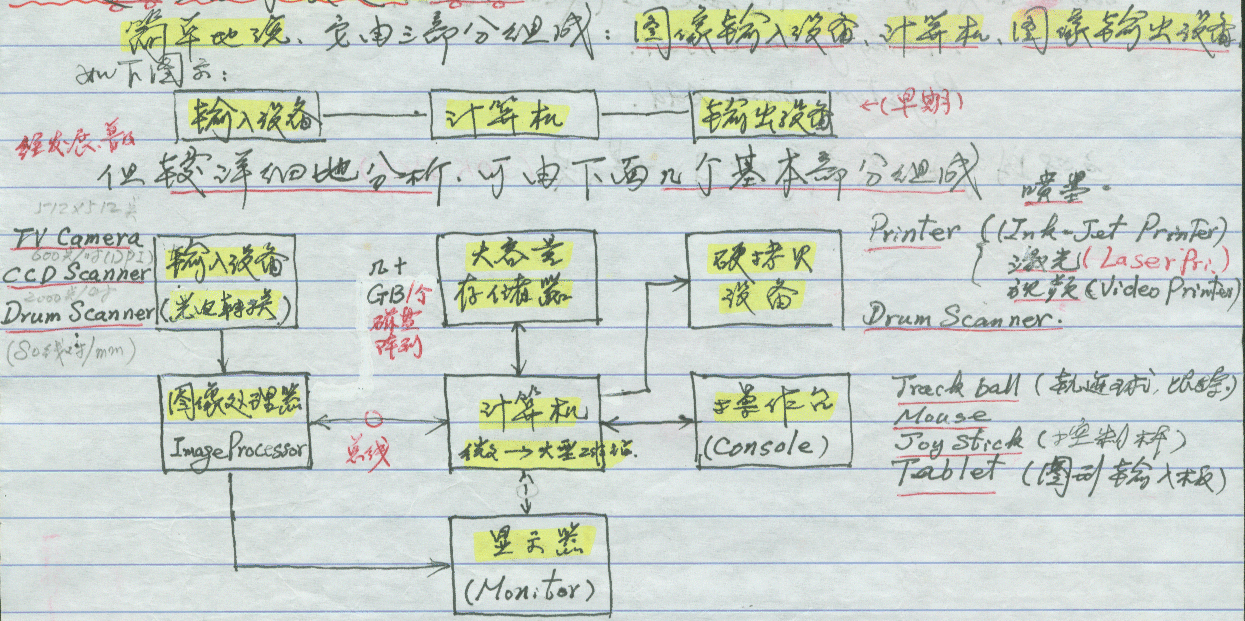 简单地说、它由三部分组成：图像输入设备、计算机、图象输出设备,
如下图示：
输入设备 计算机 输出设备 ←(早期)
经发展.
但较详细地分析.可由下面几个基本部分组成
喷墨.
512×512点
TV Camera
600点/吋(DPI)
CCD Scanner
2000点/吋
Drum Scanner
(80线对/mm)
输入设备
(光电转换)
几十
GB/个
磁盘
阵列
大容量
存储器
硬拷贝
设备
Printer ((Ink-Jet Printer)
激光(Laser Pri.)
视频(Video Printer)
Drum Scanner.
图像处理器
Image Processor
总线
计算机
微机→大型工作站.
操作台
(Console)
Track ball (轨迹球,
Mouse
Joy Stick (控制杆)
Tablet (图形输入板)
显示器
(Monitor)